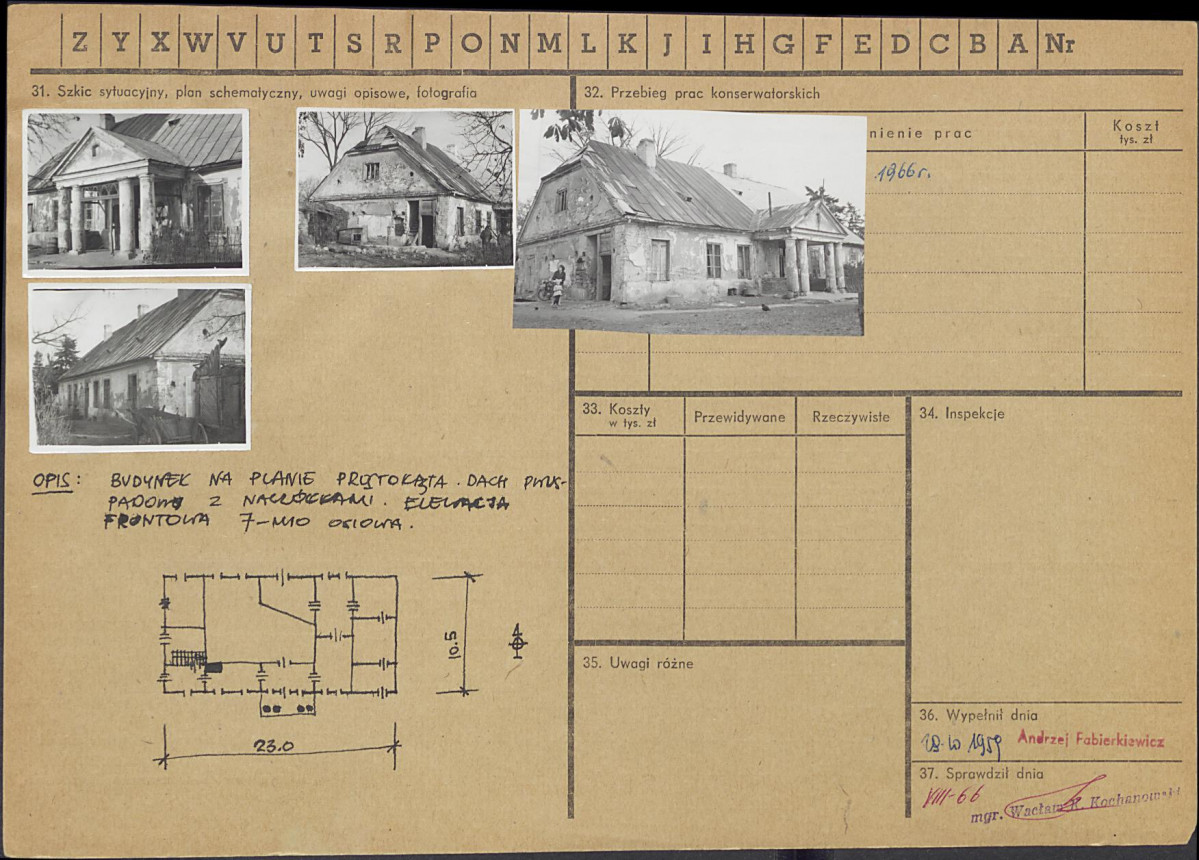 Z Y X W V U T S R P O N M L K J I H G F E D C B A Nr
31. Szkic sytuacyjny, plan schematyczny, uwagi opisowe, fotografia
32. Przebieg prac konserwatorskich
nienie prac
Koszt
tys. zł
1966 r.
OPIS: BUDYNEK NA PLANIE PROSTOKĄTA. DACH DWUS-
PADOWY Z NACZÓŁKAMI. ELEWACJA
FRONTOWA 7-MIO OSIOWA.
10.5
23.0
33. Koszty
w tys. zł
Przewidywane
Rzeczywiste
34. Inspekcje
35. Uwagi różne
36. Wypełnił dnia
1959 Andrzej Fabierkiewicz
37. Sprawdził dnia
VIII-66
mgr. Wacław K. Kochanowski